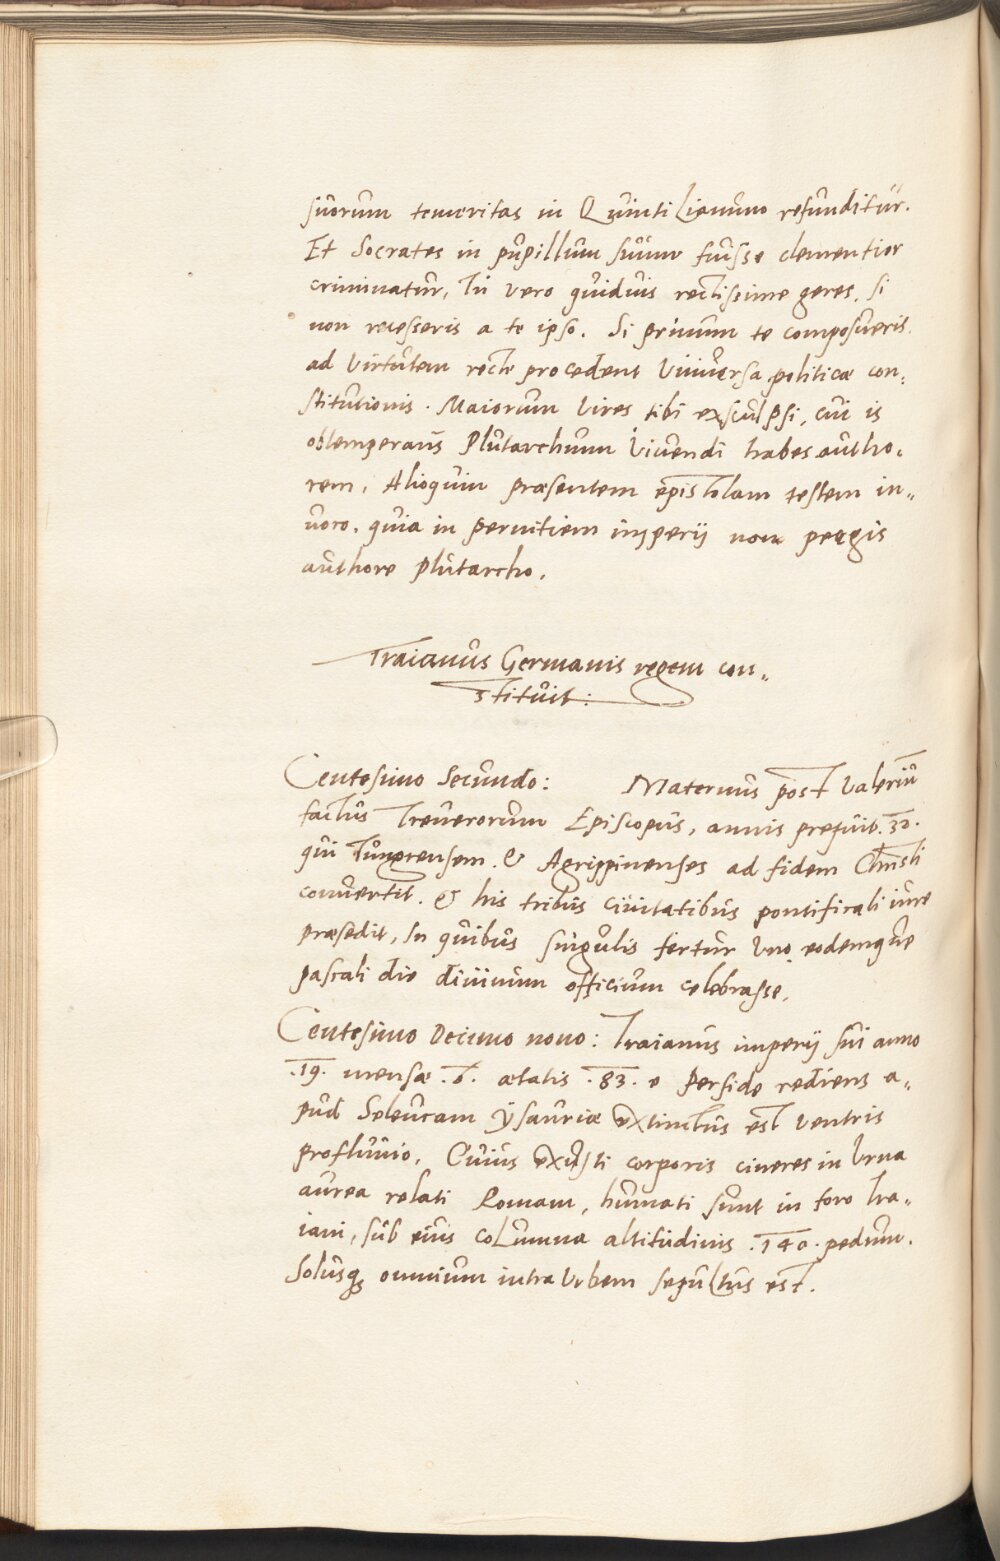 suorum temeritas in Quintilianum refunditur.
Et Socrates in pupillum suum fuisse clementior
criminatur, Tu vero quiduis rectissime geres, si
non recesseris a te ipso. Si primum te composueris
ad Virtutem recte procedent Vniuersa politicæ con,
stitutionis. Maiorum Vires tibi exsculpsi, cui is
obtemperans Plutarchum Viuendi habes autho,
rem, Alioquin præsentem epistolam testem in,,
uoco. quia in pernitiem imperij non pergis
authore Plutarcho.
Traianus Germanis regem con,,
stituit:
Centesimo Secundo: Maternus post Valeriū
factus Treuerorum Episcopus, annis prefuit .30.
qui Tungrensem. & Agrippinenses ad fidem Christi
conuertit. & his tribus ciuitatibus pontificali iure
præsedit, In quibus singulis fertur Vno eodemque
pascali die diuinum officium celebrasse.
Centesimo Decimo nono: Traianus imperij sui anno
.19. mense .6. ætatis .83. e Perside rediens a,,
pud Seleucam ÿsauriæ extinctus est ventris
profluuio, Cuius exusti corporis cineres in Vrna
aurea relati Romam, humati sunt in foro Tra,,
iani, sub eius coLumna altitudinis .140. pedum.
Solusqꝫ omnium intra Vrbem sepultus est.